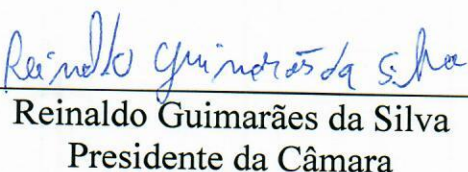 Reinaldo Guimarães da Silva
Reinaldo Guimarães da Silva
Presidente da Câmara